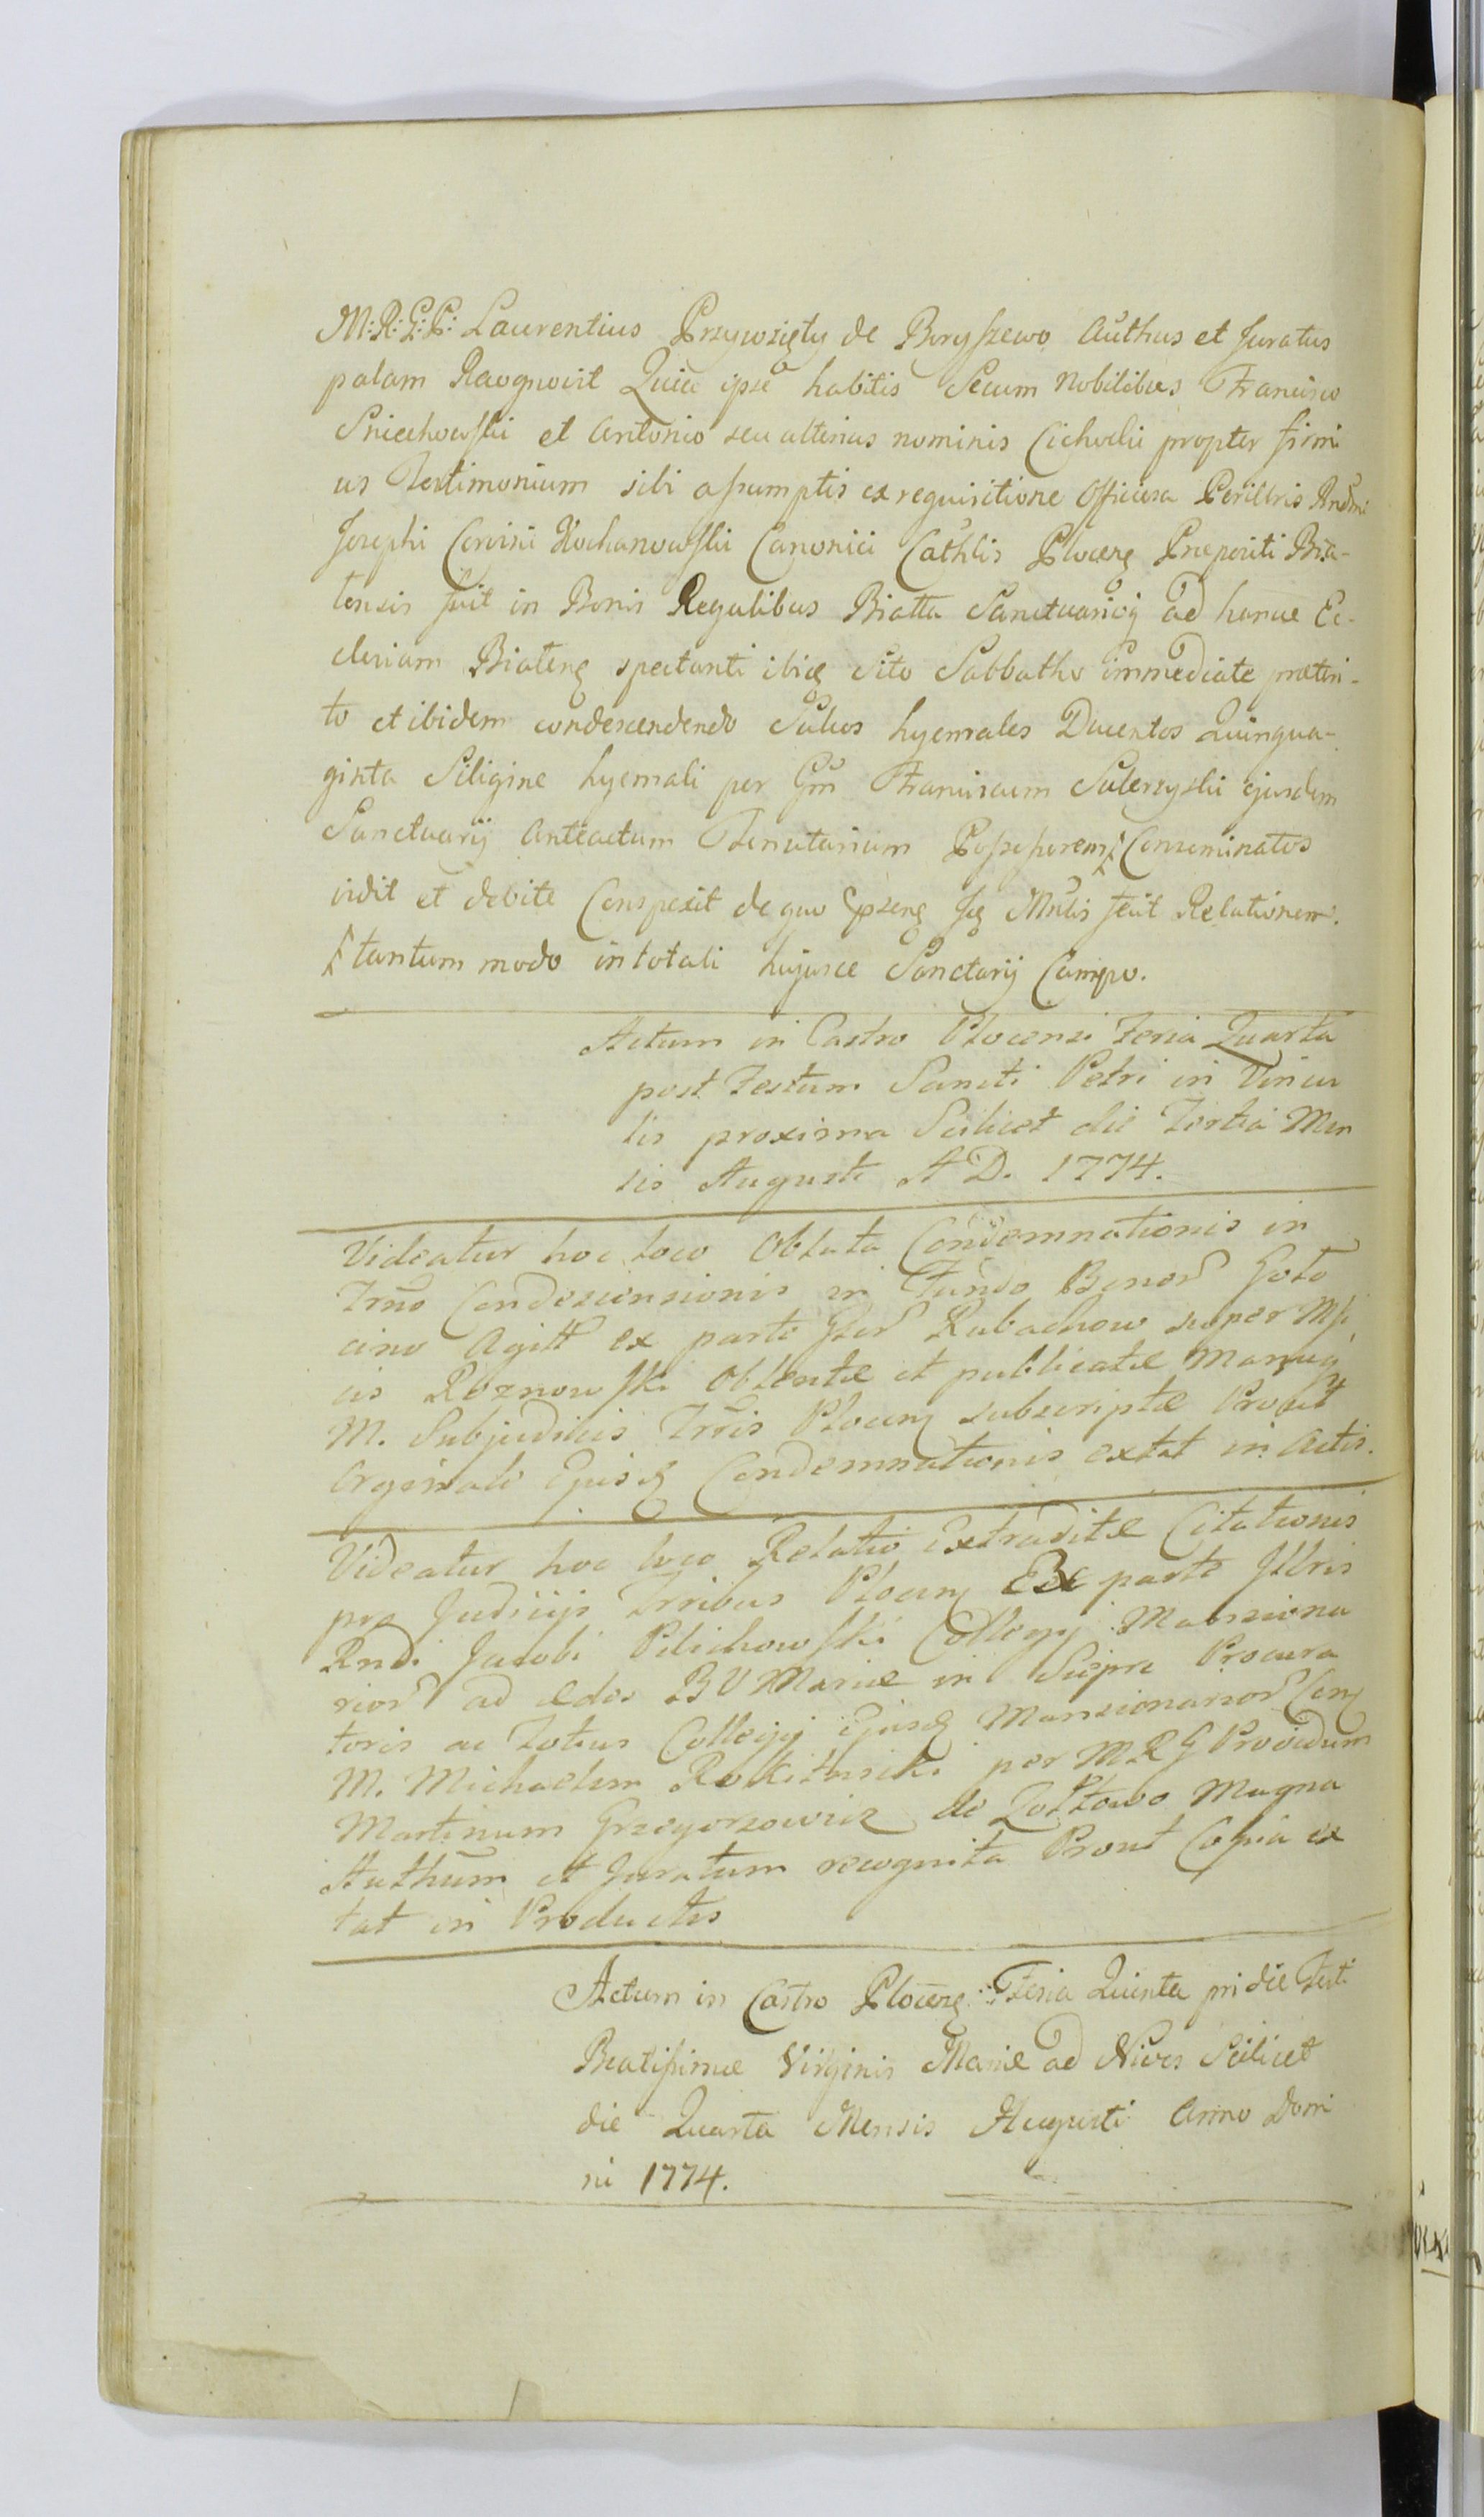 M: R: G: P: Laurentius Przywzięty de Boryszewo Authus et Juratus
palam Recognovit Quia ipse habitis Secum Nobilibus Francisco
Sniechowski et Antonio seu alterius nominis Cichocki propter firmi
us Testimonium sibi assumptis ex requisitione Officiosa Perillris Rndmi
Josephi Corvini Kochanowski Canonici Cathlis Plocens Praepositi Bia-
tensis fuit in Bonis Regalibus Biatta Sanctuarioq ad hancce Ec-
clesiam Biatens spectanti ibiq sito Sabbatho immediate praeteri-
to et ibidem condescendendo Sulcos hyemales Ducentos Quinqua-
ginta Siligine hyemali per Gm Franciscum Sulerzyski ejusdem
Sanctuarij anteactum Tenutarium Possessorem Conseminatos
vidit et debite Conspexit de quo Mnlis fecit Relationem.
tantum modo in totali hujusce Sanctarij Campo.
Actum in Castro Plocensi Feria Quarta
post Festum Sancti Petri in Vincu
lis proxima Scilicet die Tertia Men
sis Augusti A D. 1774.
Videatur hoc loco Oblata Condemnationis in
Trno Condescensionis in Fundo Bonor Goto
cino Agitt ex parte Gsor Rubachow super
us Roznowski Obtentae et publicatae Manuq
M. Subjudicis Trris Plocens subscriptae Prout
Orginale Ejusq Condemnationis extat in Actis.
Videatur hoc loco Relatio Extraditae Citationis
pro Judicijs Trribus Plocens Ex parte Illris
Rndi Jacobi Pilichowski Collegij Mansiona
rior ad aedes B V Mariae in Sierpc Procura
toris ac Totius Collegij Ejusq Mansionarior Con
M. Michaelem Rokitnicki per M R G Providum
Martinum Grzegorzowicz de Zołtowo Magna
Authum et Juratum recognita Prout Copia ex
tat in Productis
Actum in Castro Plocens: Feria Quinta pridie Festi
Beatissimae Virginis Mariae ad Nives Scilicet
die Quarta Mensis Augusti Anno Domi
ni 1774.